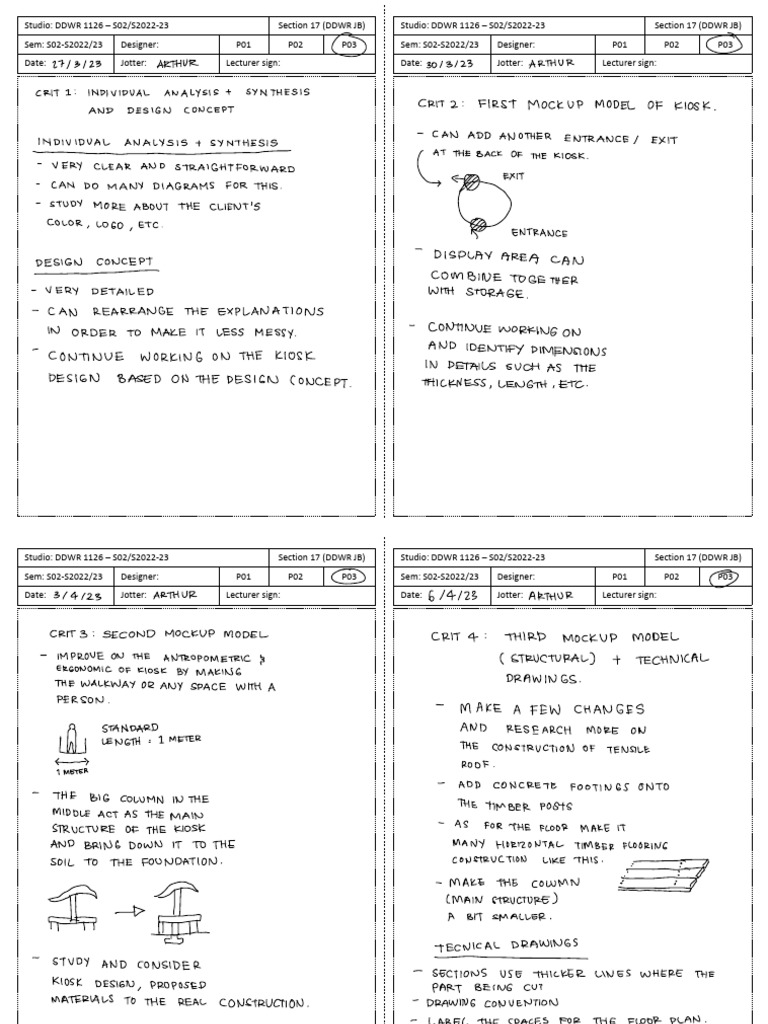 Studio: DDWR 1126 – S02/S2022-23 Section 17 (DDWR JB)
Sem: S02-S2022/23 Designer: P01 P02 P03
Date: 27/3/23 Jotter: ARTHUR Lecturer sign:
CRIT 1: INDIVIDUAL ANALYSIS + SYNTHESIS
AND DESIGN CONCEPT
INDIVIDUAL ANALYSIS + SYNTHESIS
- VERY CLEAR AND STRAIGHTFORWARD
- CAN DO MANY DIAGRAMS FOR THIS.
- STUDY MORE ABOUT THE CLIENT'S
COLOR, LOGO, ETC.
DESIGN CONCEPT
- VERY DETAILED
- CAN REARRANGE THE EXPLANATIONS
IN ORDER TO MAKE IT LESS MESSY.
- CONTINUE WORKING ON THE KIOSK
DESIGN BASED ON THE DESIGN CONCEPT.
Studio: DDWR 1126 – S02/S2022-23 Section 17 (DDWR JB)
Sem: S02-S2022/23 Designer: P01 P02 P03
Date: 30/3/23 Jotter: ARTHUR Lecturer sign:
CRIT 2: FIRST MOCKUP MODEL OF KIOSK.
- CAN ADD ANOTHER ENTRANCE/ EXIT
AT THE BACK OF THE KIOSK.
EXIT
ENTRANCE
- DISPLAY AREA CAN
COMBINE TOGETHER
WITH STORAGE.
- CONTINUE WORKING ON
AND IDENTIFY DIMENSIONS
IN DETAILS SUCH AS THE
THICKNESS, LENGTH, ETC.
Studio: DDWR 1126 – S02/S2022-23 Section 17 (DDWR JB)
Sem: S02-S2022/23 Designer: P01 P02 P03
Date: 3/4/23 Jotter: ARTHUR Lecturer sign:
CRIT 3: SECOND MOCKUP MODEL
- IMPROVE ON THE ANTROPOMETRIC &
ERGONOMIC OF KIOSK BY MAKING
THE WALKWAY OR ANY SPACE WITH A
PERSON.
STANDARD
LENGTH = 1 METER
1 METER
- THE BIG COLUMN IN THE
MIDDLE ACT AS THE MAIN
STRUCTURE OF THE KIOSK
AND BRING DOWN IT TO THE
SOIL TO THE FOUNDATION.
- STUDY AND CONSIDER
KIOSK DESIGN, PROPOSED
MATERIALS TO THE REAL CONSTRUCTION.
Studio: DDWR 1126 – S02/S2022-23 Section 17 (DDWR JB)
Sem: S02-S2022/23 Designer: P01 P02 P03
Date: 6/4/23 Jotter: ARTHUR Lecturer sign:
CRIT 4: THIRD MOCKUP MODEL
(STRUCTURAL) + TECHNICAL
DRAWINGS.
- MAKE A FEW CHANGES
AND RESEARCH MORE ON
THE CONSTRUCTION OF TENSILE
ROOF.
- ADD CONCRETE FOOTINGS ONTO
THE TIMBER POSTS
- AS FOR THE FLOOR MAKE IT
MANY HORIZONTAL TIMBER FLOORING
CONSTRUCTION LIKE THIS.
- MAKE THE COLUMN
(MAIN STRUCTURE)
A BIT SMALLER.
TECNICAL DRAWINGS
- SECTIONS USE THICKER LINES WHERE THE
PART BEING CUT
- DRAWING CONVENTION
- LABEL THE SPACES FOR THE FLOOR PLAN.